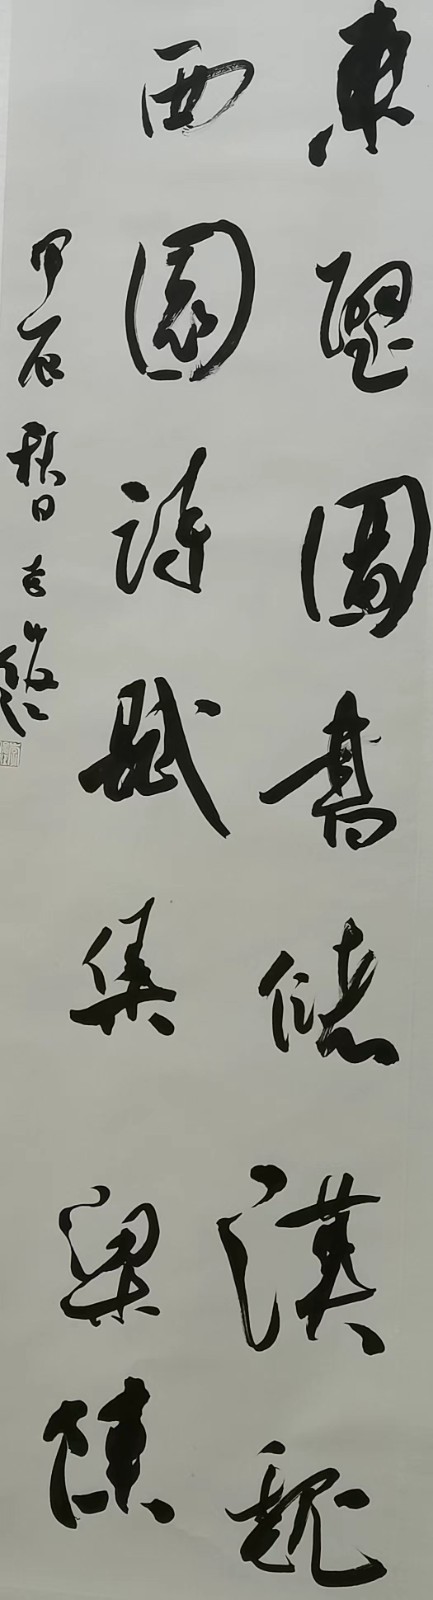 東壁圖書儲漢魏
西園詩賦集梁陳
甲辰秋日